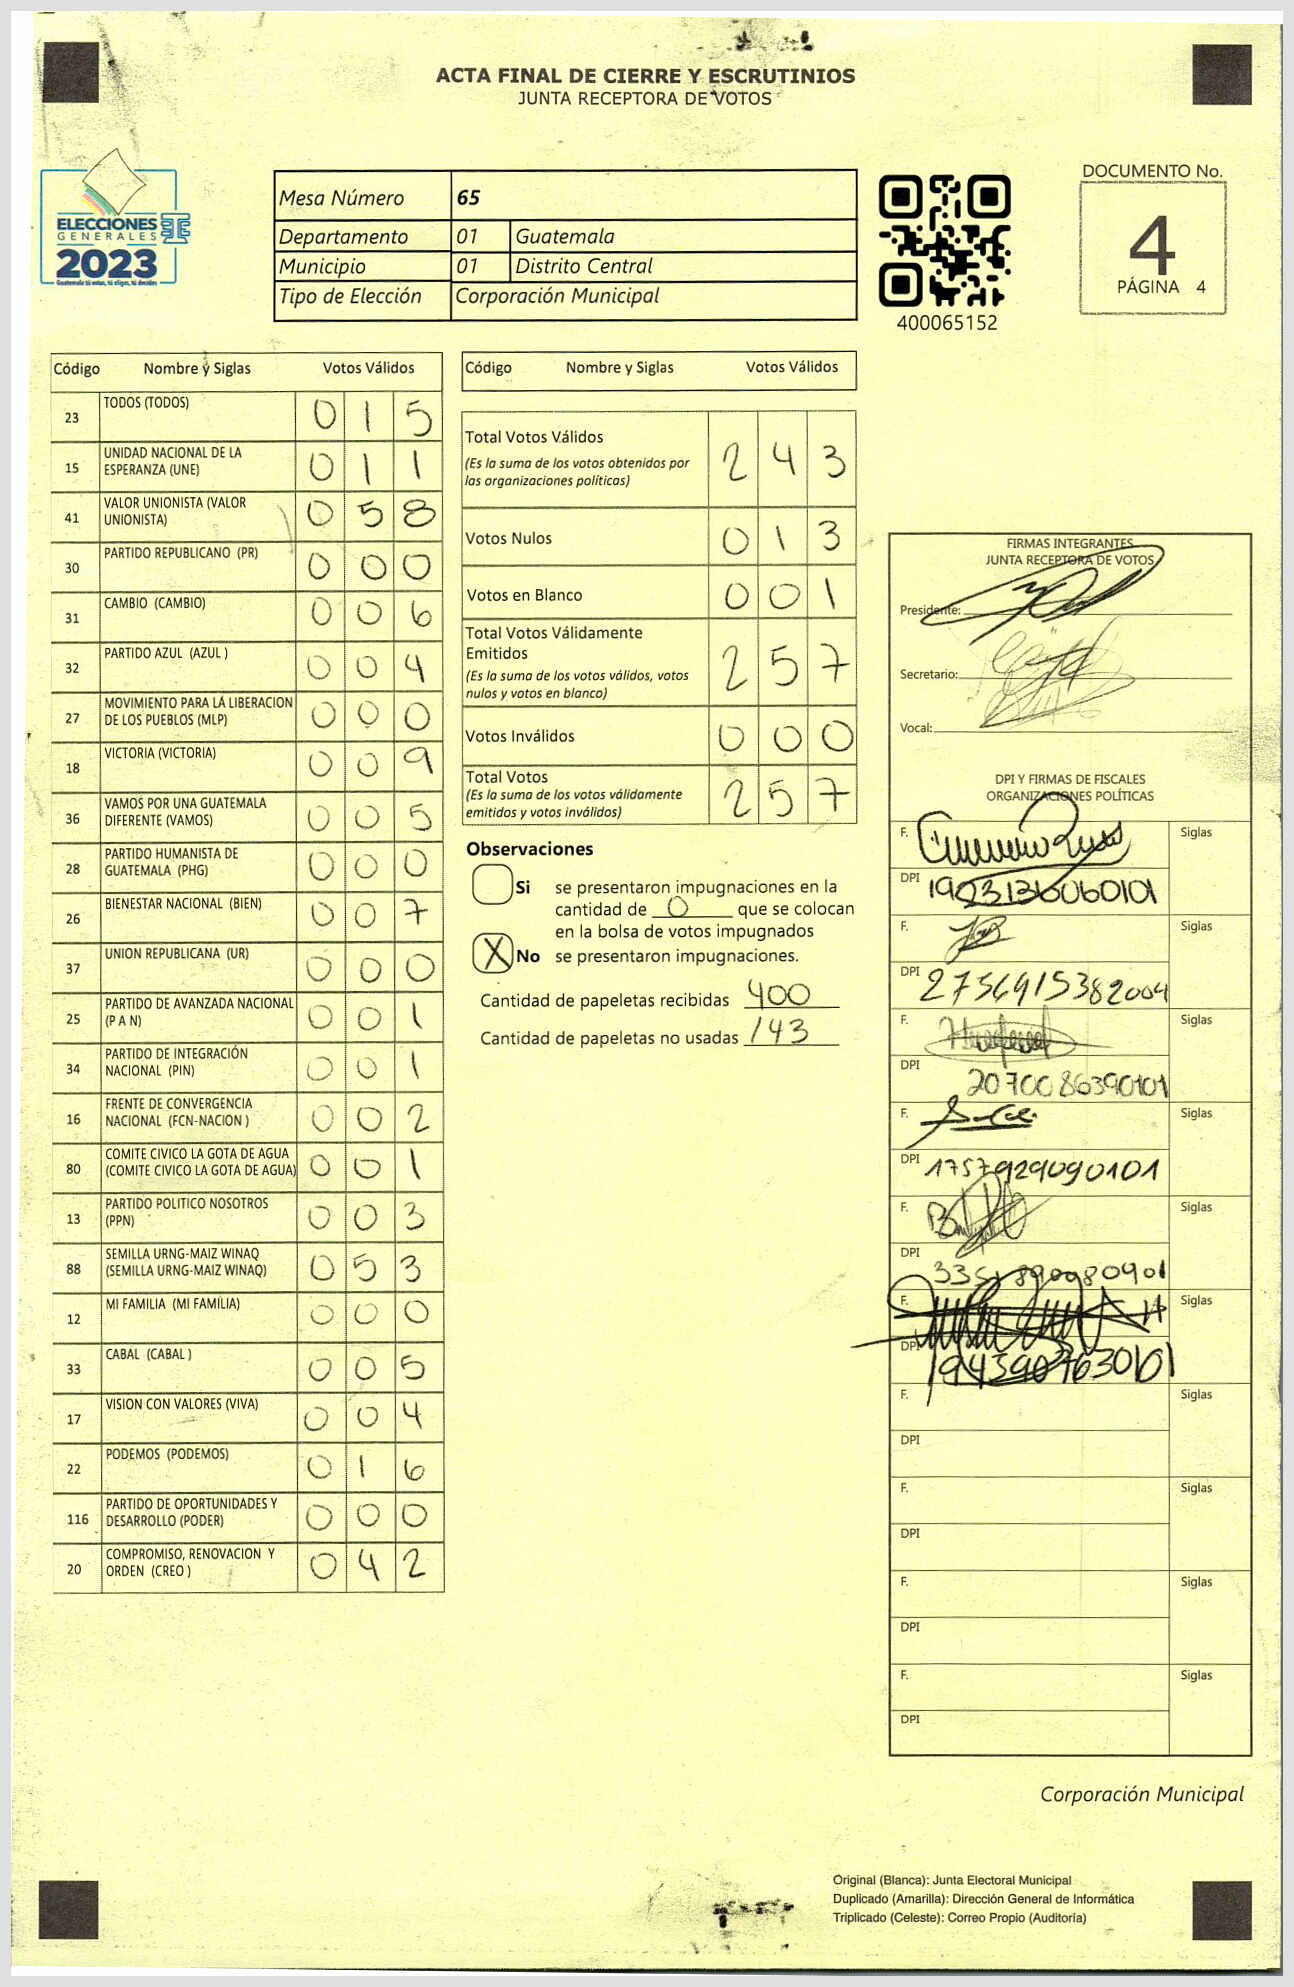 ACTA FINAL DE CIERRE Y ESCRUTINIOS
JUNTA RECEPTORA DE VOTOS
ELECCIONES
GENERALES
2023
Guatemala tú votas, tú eliges, tú decides
Mesa Número 65
Departamento 01 Guatemala
Municipio 01 Distrito Central
Tipo de Elección Corporación Municipal
400065152
DOCUMENTO No.
4
PÁGINA 4
Código Nombre y Siglas Votos Válidos
23 TODOS (TODOS) 0 1 5
15 UNIDAD NACIONAL DE LA
ESPERANZA (UNE) 0 1 1
41 VALOR UNIONISTA (VALOR
UNIONISTA) 0 5 8
30 PARTIDO REPUBLICANO (PR) 0 0 0
31 CAMBIO (CAMBIO) 0 0 6
32 PARTIDO AZUL (AZUL ) 0 0 4
27 MOVIMIENTO PARA LA LIBERACION
DE LOS PUEBLOS (MLP) 0 0 0
18 VICTORIA (VICTORIA) 0 0 9
36 VAMOS POR UNA GUATEMALA
DIFERENTE (VAMOS) 0 0 5
28 PARTIDO HUMANISTA DE
GUATEMALA (PHG) 0 0 0
26 BIENESTAR NACIONAL (BIEN) 0 0 7
37 UNION REPUBLICANA (UR) 0 0 0
25 PARTIDO DE AVANZADA NACIONAL
(P A N) 0 0 1
34 PARTIDO DE INTEGRACIÓN
NACIONAL (PIN) 0 0 1
16 FRENTE DE CONVERGENCIA
NACIONAL (FCN-NACION ) 0 0 2
80 COMITE CIVICO LA GOTA DE AGUA
(COMITE CIVICO LA GOTA DE AGUA) 0 0 1
13 PARTIDO POLITICO NOSOTROS
(PPN) 0 0 3
88 SEMILLA URNG-MAIZ WINAQ
(SEMILLA URNG-MAIZ WINAQ) 0 5 3
12 MI FAMILIA (MI FAMILIA) 0 0 0
33 CABAL (CABAL ) 0 0 5
17 VISION CON VALORES (VIVA) 0 0 4
22 PODEMOS (PODEMOS) 0 1 6
116 PARTIDO DE OPORTUNIDADES Y
DESARROLLO (PODER) 0 0 0
20 COMPROMISO, RENOVACION Y
ORDEN (CREO ) 0 4 2
Código Nombre y Siglas Votos Válidos
Total Votos Válidos 2 4 3
(Es la suma de los votos obtenidos por
las organizaciones políticas)
Votos Nulos 0 1 3
Votos en Blanco 0 0 1
Total Votos Válidamente
Emitidos 2 5 7
(Es la suma de los votos válidos, votos
nulos y votos en blanco)
Votos Inválidos 0 0 0
Total Votos 2 5 7
(Es la suma de los votos válidamente
emitidos y votos inválidos)
Observaciones
Si se presentaron impugnaciones en la
cantidad de 0 que se colocan
en la bolsa de votos impugnados
X No se presentaron impugnaciones.
Cantidad de papeletas recibidas 400
Cantidad de papeletas no usadas 143
FIRMAS INTEGRANTES
JUNTA RECEPTORA DE VOTOS
Presidente:
Secretario:
Vocal:
DPI Y FIRMAS DE FISCALES
ORGANIZACIONES POLÍTICAS
F. Siglas
DPI
F. Siglas
DPI 2756915382004
F. Siglas
DPI 2070086390101
F. Siglas
DPI 1757929090101
F. Siglas
DPI
F. Siglas
DPI
F. Siglas
DPI
F. Siglas
DPI
F. Siglas
DPI
F. Siglas
DPI
Corporación Municipal
Original (Blanca): Junta Electoral Municipal
Duplicado (Amarilla): Dirección General de Informática
Triplicado (Celeste): Correo Propio (Auditoría)